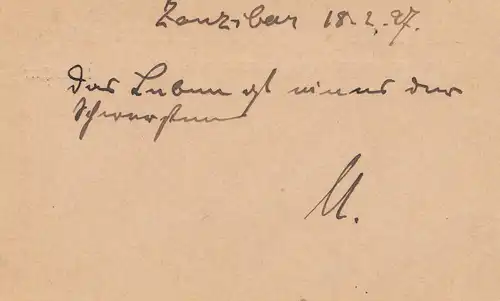 Zanzibar 18.2.27.
Das Leben ist eines der
Schwersten
U.